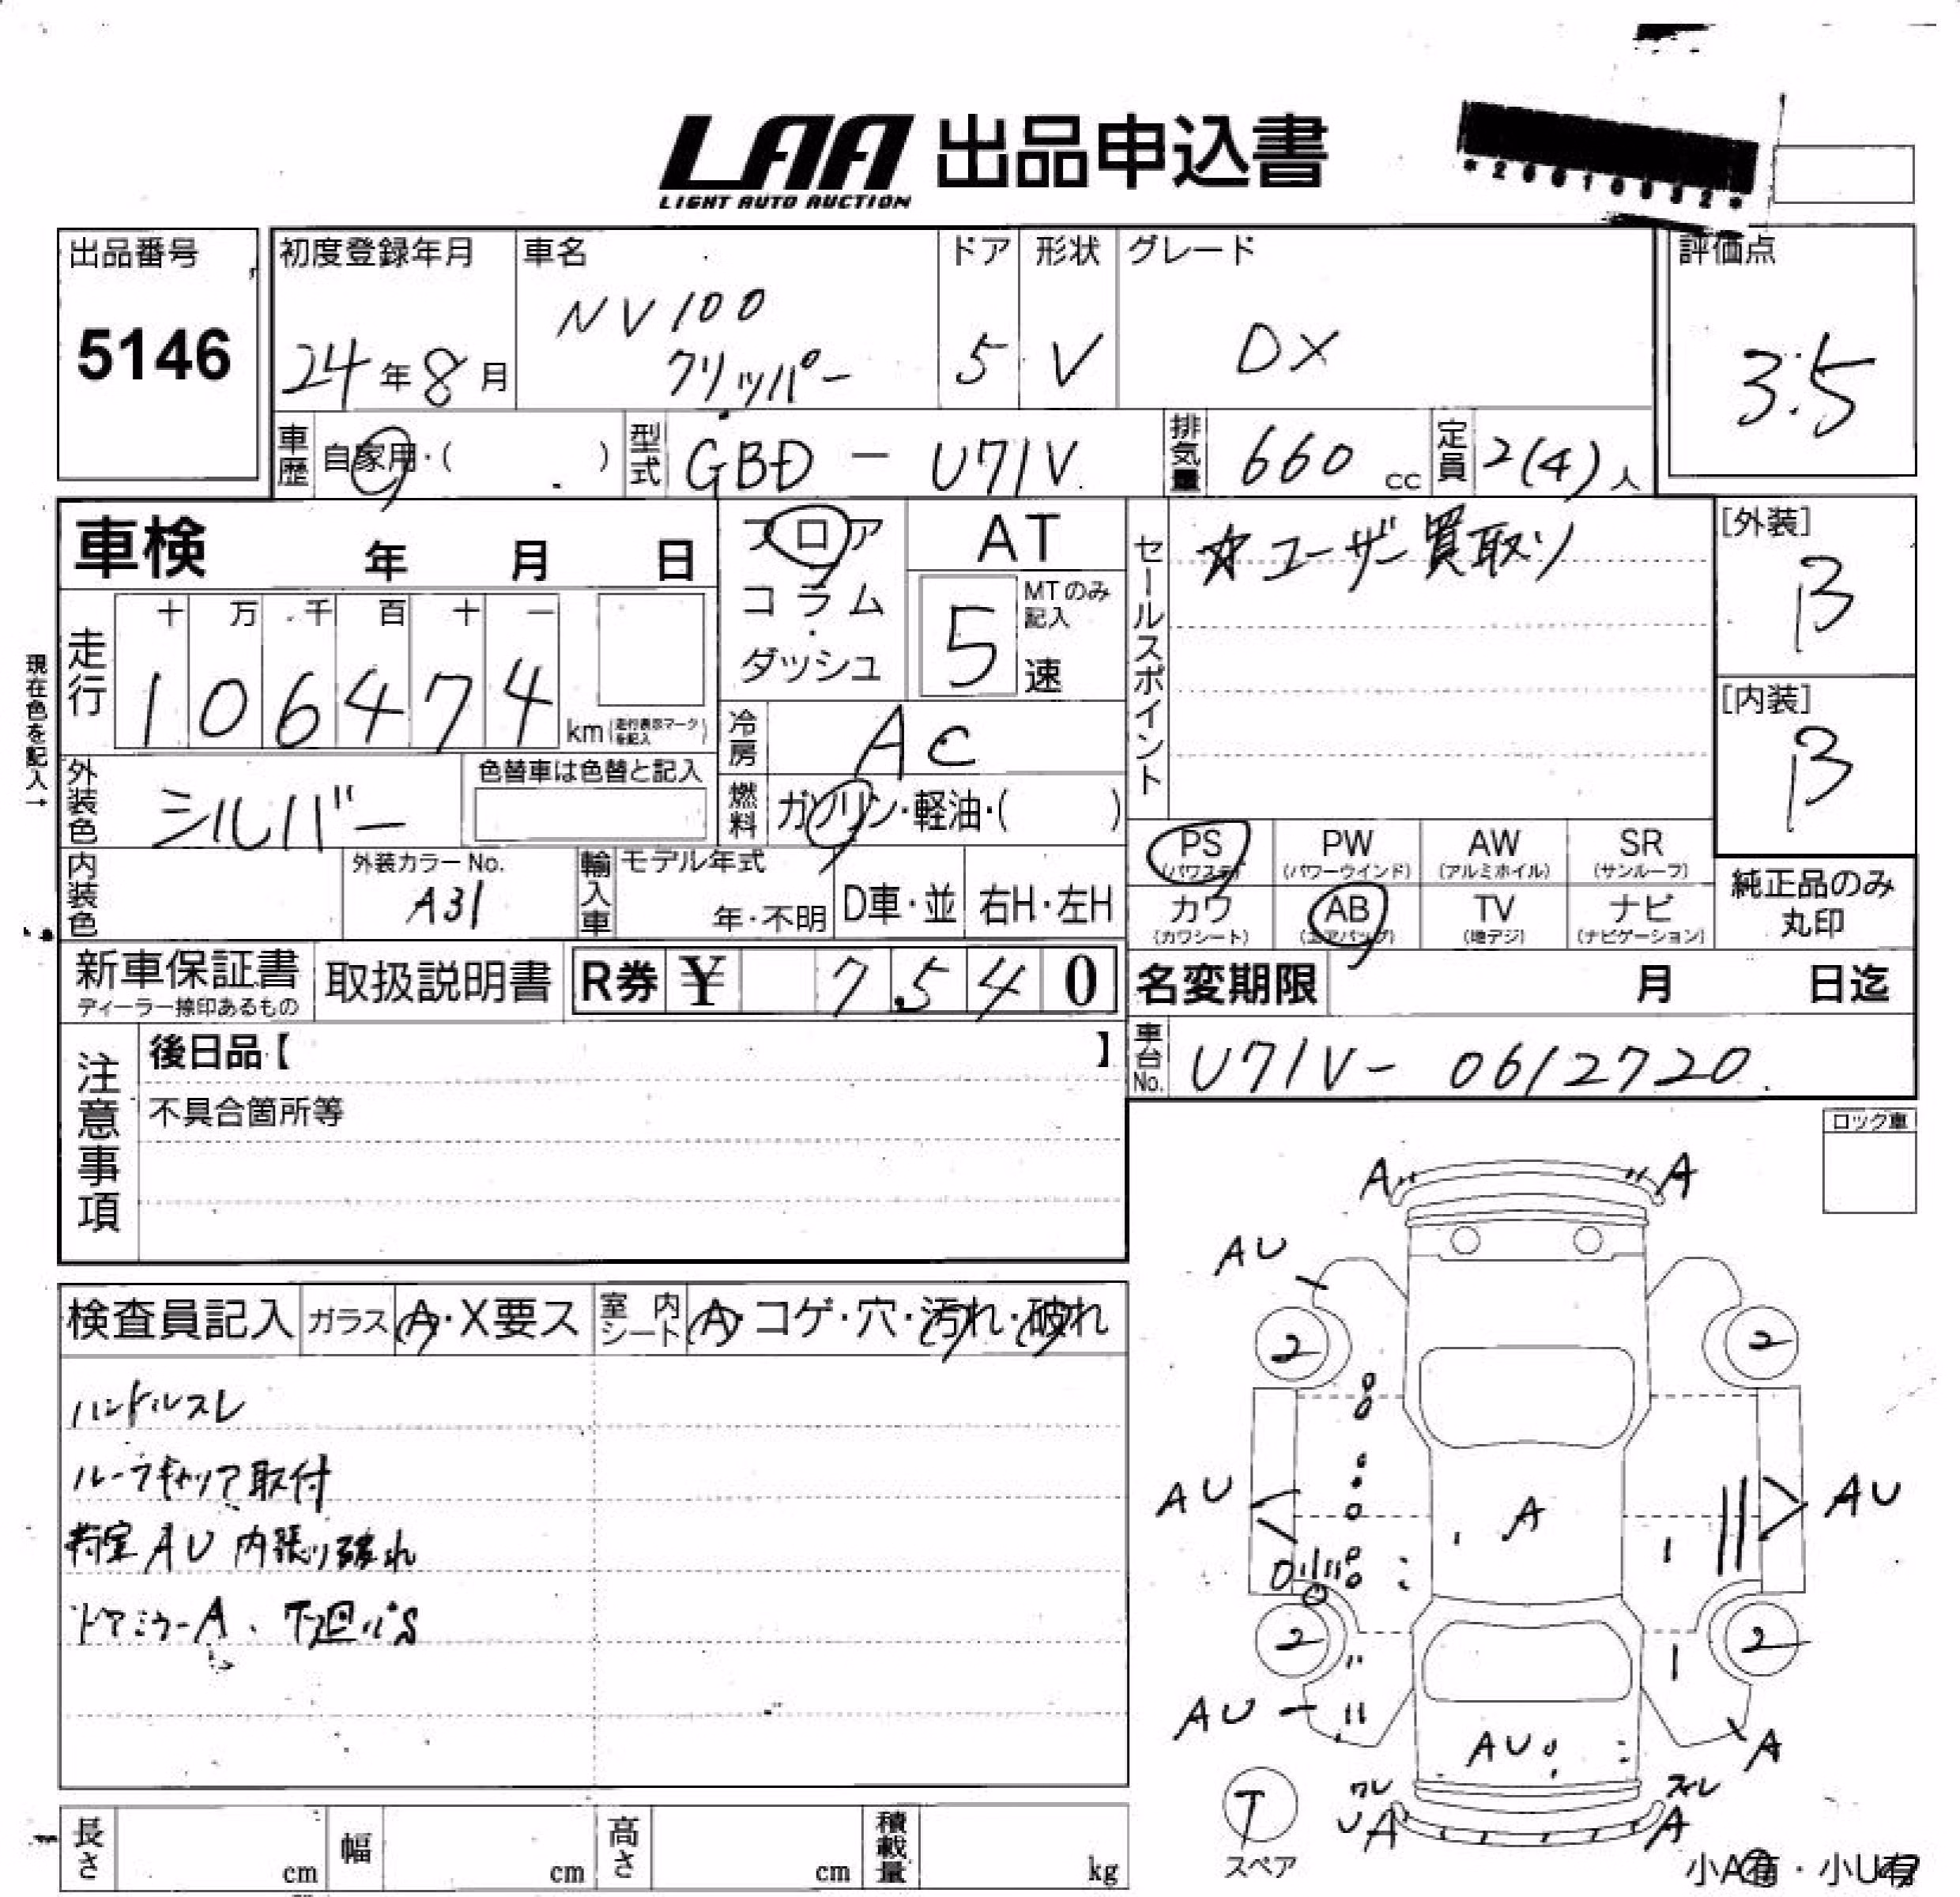 LAA 出品申込書
LIGHT AUTO AUCTION
*20010032*
出品番号
5146
初度登録年月
24年8月
車名
NV100
クリッパー
ドア
5
形状
V
グレード
DX
評価点
3.5
車歴 自家用・( )
型式 GBD - U71V
排気量 660 cc
定員 2(4)人
車検 年 月 日
フロア
コラム
・
ダッシュ
AT
MTのみ記入
5速
セールスポイント
☆ユーザー買取り
[外装]
B
[内装]
B
現在色を記入→
走行
十 万 千 百 十 一
1 0 6 4 7 4 km(走行表示マークを記入)
冷房 AC
燃料 ガソリン・軽油・( )
外装色 シルバー
色替車は色替と記入
内装色
外装カラーNo.
A31
輸入車
モデル年式
年・不明
D車・並
右H・左H
PS (パワステ)
PW (パワーウインド)
AW (アルミホイル)
SR (サンルーフ)
カワ (カワシート)
AB (エアバッグ)
TV (地デジ)
ナビ (ナビゲーション)
純正品のみ
丸印
新車保証書
ディーラー捺印あるもの
取扱説明書
R券 ¥ 7 5 4 0
名変期限 月 日迄
車台No. U71V- 0612720
注意事項
後日品【 】
不具合箇所等
ロック車
検査員記入
ガラス A・X要ス
室内シート A・コゲ・穴・汚れ・破れ
ハンドルスレ
ルーフキャリア取付
荷室AU 内張り破れ
ドアミラーA、下廻パS
A A
AU
2 2
AU A AU
2 2
AU AU A
ワレ スレ
UA A
T
スペア
小A有・小U有
長さ cm
幅 cm
高さ cm
積載量 kg